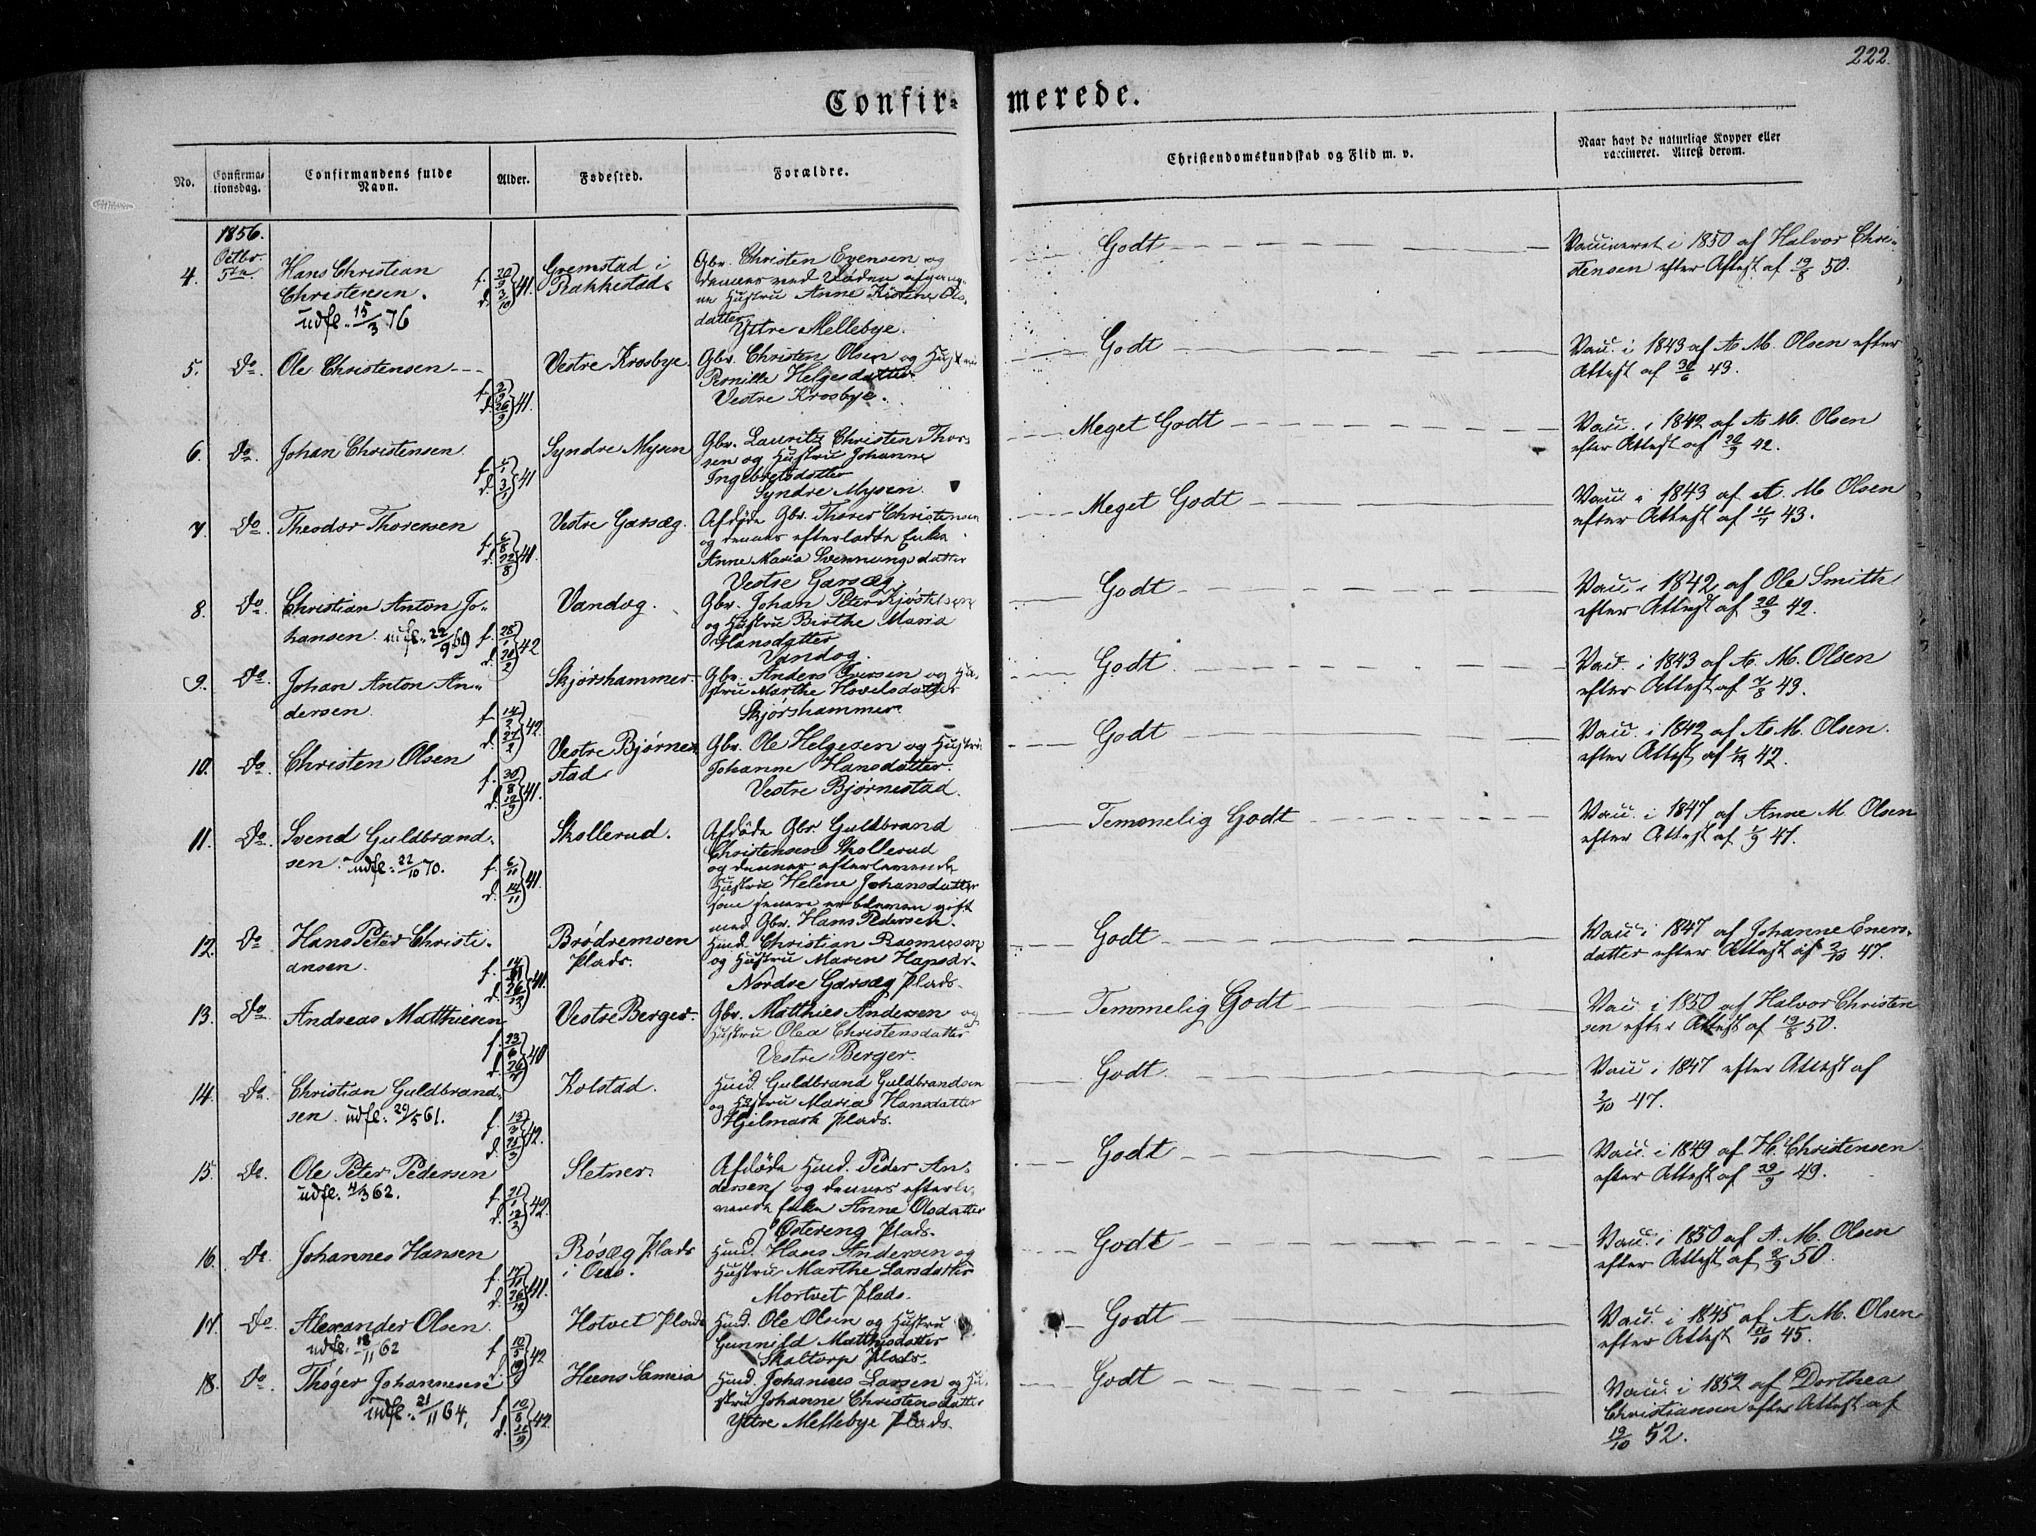 222.
Confir- merede.
No.
Confirma-
tionsdag.
Confirmandens fulde
Navn.
Alder.
Fødested.
Forældre.
Christendomskundskab og Flid m. v.
Naar havt de naturlige Kopper eller
vaccineret. Attest derom.
1856.
Octbr.
5te
4.
Hans Christian
Christensen.
udfl. 15/3 76
f. 20/9
d. 3/10 } 41.
Gremstad i
Rakkestad
Gbr. Christen Evensen og
ne Hustru Anne Kirstine Ols-
datter
Ytre Mellebye.
Godt
Vaccineret i 1850 af Halvor Chri-
stensen efter Attest af 19/8 50.
5. Do. Ole Christensen
f. 2/9
d. 26/9 } 41.
Vestre Krosbye.
Gbr. Christen Olsen og Hustru
Pernille Helgesdatter
Vestre Krosbye.
Godt
Vacc. i 1843 af A. M. Olsen efter
Attest af 30/6 43.
6. Do. Johan Christensen
41
Syndre Mysen
Gbr. Lauritz Christen Thor-
sen og Hustru Johanne
Ingebretsdatter
Syndre Mysen.
Meget Godt
Vacc. i 1842 af A. M. Olsen
efter Attest af 20/9 42.
7. Do. Theodor Thorersen
f. 6/8
d. 22/8 } 41.
Vestre Garsæg.
Afdøde Gbr. Thorer Christensen
og dennes efterladte Enke
Anne Maria Svennungsdatter
Vestre Garsæg.
Meget Godt
Vacc. i 1843 af A. M. Olsen
efter Attest af 11/7 43.
8. Do. Christian Anton Jo-
hansen. udfl. 22/9 69
f. 28/1
d. 20/2 } 42
Vandog.
Gbr. Johan Peter Kjøstelsen
og Hustru Birthe Maria
Hansdatter
Vandog.
Godt
Vacc. i 1842 af Ole Smith
efter Attest af 20/9 42.
9. Do. Johan Anton An-
dersen.
f. 14/2
d. 27/2 } 42.
Skjørshammer.
Gbr. Anders Iversen og Hu-
stru Marthe Hovelsdatter
Skjørshammer.
Godt
Vacc. i 1843 af A. M. Olsen
efter Attest af 7/8 43.
10. Do. Christen Olsen
f. 30/8
d. 12/9 } 41.
Vestre Bjørne-
stad
Gbr. Ole Helgesen og Hustru
Johanne Hansdatter.
Vestre Bjørnestad.
Godt
Vacc. i 1842 af A. M. Olsen.
efter Attest af 1/12 42.
11. Do. Svend Guldbrand-
sen. udfl. 22/10 70.
f. 6/11
d. 14/11 } 41.
Skollerud.
Afdøde Gbr. Guldbrand
Christensen Skollerud
og dennes efterlevende
Hustru Helene Johansdatter
som senere er bleven gift
med Gbr. Hans Pedersen.
Temmelig Godt
Vacc. i 1847 af Anne M. Olsen
efter Attest af 1/9 47.
12. Do. Hans Peter Christi-
ansen.
f. 14/11
d. 26/12 } 41.
Brødremoen
Plads.
Huusm. Christian Rasmussen
og Hustru Maren Hansdr.
Nordre Garsæg Plads.
Godt
Vacc. i 1847 af Johanne Eners-
datter efter Attest af 2/10 47.
13. Do. Andreas Matthiesen
f. 23/6
d. 26/7 } 40
Vestre Berger.
Gbr. Matthies Andersen og
Hustru Olea Christensdatter
Vestre Berger.
Temmelig Godt
Vacc. i 1850 af Halvor Christen
sen efter Attest af 19/8 50.
14. Do. Christian Guldbrand-
sen. udfl. 29/5 61.
f. 13/3
d. 25/3 } 42.
Kolstad.
Huusm. Guldbrand Guldbrandsen
og Hustru Maria Hansdatter
Hjelmark Plads.
Godt
Vacc. i 1847 efter Attest af
2/10 47.
15. Do. Ole Peter Pedersen
udfl. 4/3 62.
f. 21/1
d. 13/2 } 42.
Sletner.
Afdøde Huusm. Peder An-
dersen og dennes efterle-
vende Enke Anne Olsdatter
Østereng Plads.
Godt
Vacc. i 1849 af H. Christensen
efter Attest af 29/9 49.
16. Do. Johannes Hansen
f. 17/11
d. 26/12 } 41.
Røsæg Plads
i Ous.
Huusm. Hans Andersen og
Hustru Marthe Larsdatter
Mortvet Plads.
Godt
Vacc. i 1850 af A. M. Olsen
efter Attest af 2/9 50.
17. Do. Alexander Olsen.
udfl. 18/11 62
42
Hotvet Plads
Huusm. Ole Olsen og Hustru
Gunnild Matthisdatter
Skaltorp Plads.
Godt
Vacc. i 1845 af A. M. Olsen
efter Attest 11/10 45.
18. Do. Thøger Johannesen
udfl. 21/11 64.
42.
Huusm. Johannes Larsen og Hu-
stru Johanne Christensdatter
Ytre Mellebye Plads.
Godt
Vacc. i 1852 af Dorthea
Christiansen efter Attest af
19/10 52.